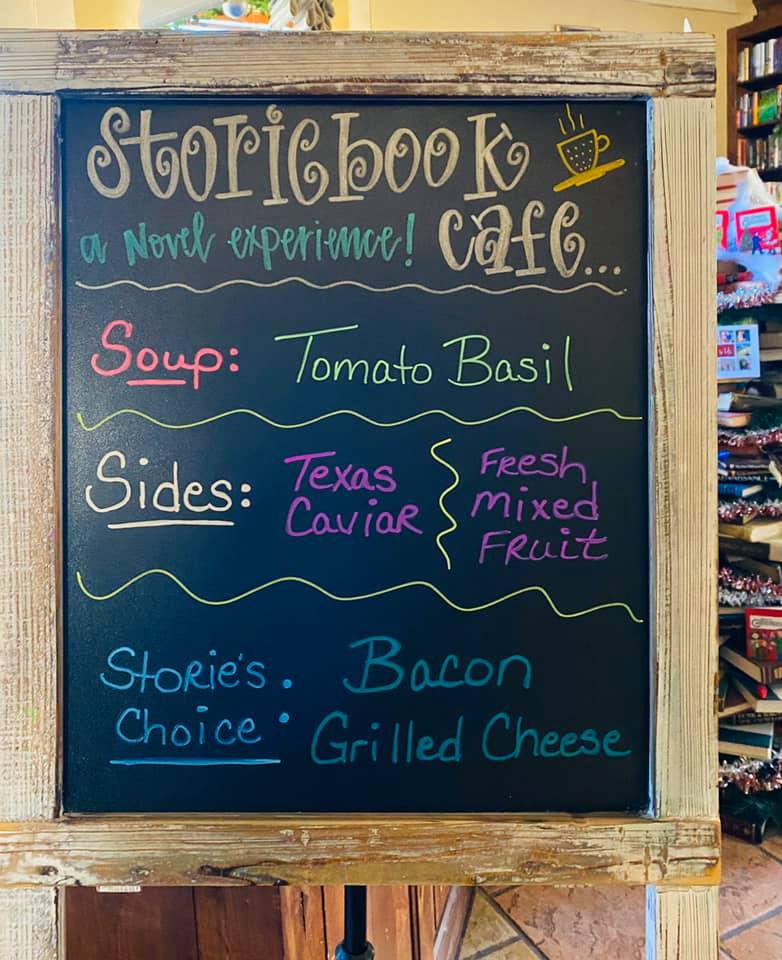 Storiebook
a Novel experience! cafe...
Soup: Tomato Basil
Sides: Texas Caviar
Fresh Mixed Fruit
Storie's Choice: Bacon Grilled Cheese